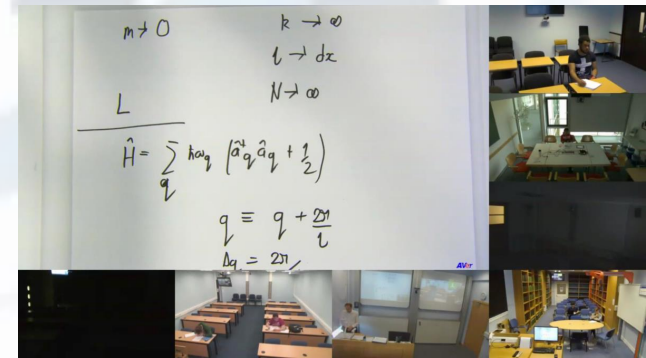 m→0
k→∞
l→dx
N→∞
L
Ĥ = Σ_q ħω_q (â†_q â_q + 1/2)
q ≡ q + 2π/l
Δq = 2π/
AVer